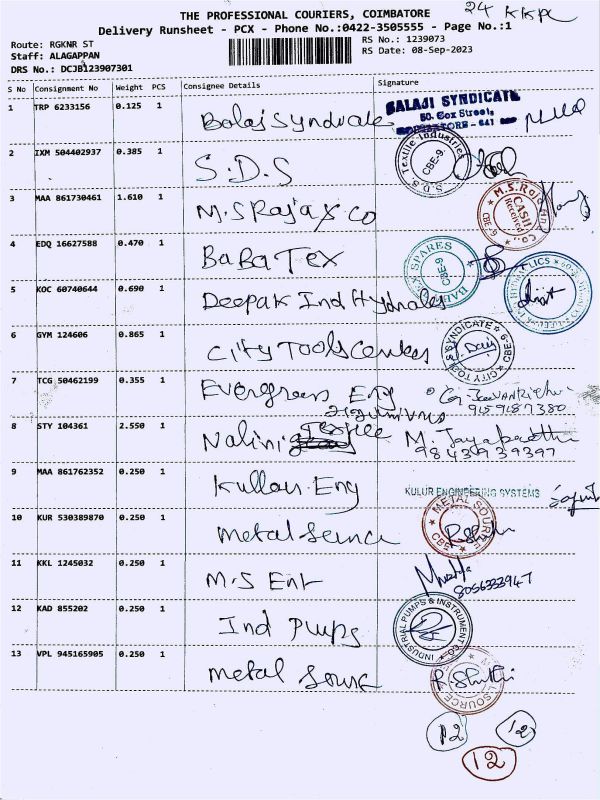 THE PROFESSIONAL COURIERS, COIMBATORE
24 KKPC
Delivery Runsheet - PCX - Phone No.:0422-3505555 - Page No.:1
Route: RGKNR ST
RS No.: 1239073
Staff: ALAGAPPAN
RS Date: 08-Sep-2023
DRS No.: DCJB123907301
S No Consignment No Weight PCS Consignee Details Signature
1 TRP 6233156 0.125 1 Balaji Syndicate BALAJI SYNDICATE
50, Cox Street,
COIMBATORE - 641
2 IXM 504402937 0.385 1 S.D.S S.D.S Textile Industries CBE-9.
3 MAA 861730461 1.610 1 M.S Raja & Co M.S.Raja CASH Received CBE-9
4 EDQ 16627588 0.470 1 BaBa Tex BABA TEX SPARES CBE-9
5 KOC 60740644 0.690 1 Deepak Ind Hydralics
6 GYM 124606 0.865 1 City Tools Centers CITY TOOLS SYNDICATE CBE-9
7 TCG 50462199 0.355 1 Evergreen Eng
9159187380
8 STY 104361 2.550 1 Nalini Textile M. Jayabarathi
9843939397
9 MAA 861762352 0.250 1 Kullur Eng KULUR ENGINEERING SYSTEMS
10 KUR 530389870 0.250 1 Metal Source METAL SOURCE CBE
11 KKL 1245032 0.250 1 M.S Ent
8056333947
12 KAD 855202 0.250 1 Ind Pumps INDUSTRIAL PUMPS & INSTRUMENT CO.
13 VPL 945165905 0.250 1 Metal Sourc METAL SOURCE
P2 12
12